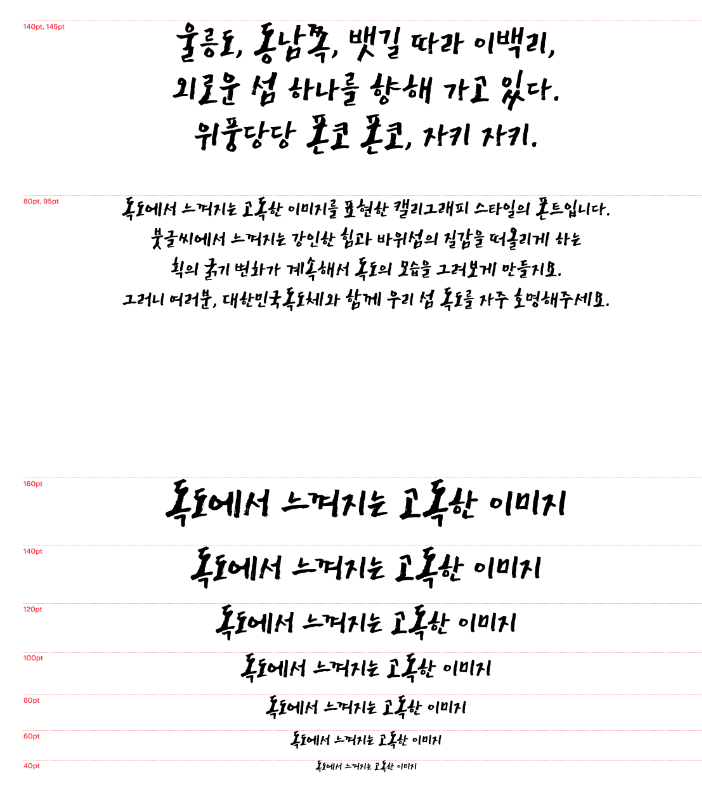 140pt, 145pt
울릉도, 동남쪽, 뱃길 따라 이백리,
외로운 섬 하나를 향해 가고 있다.
위풍당당 폰코 폰코, 자키 자키.
80pt, 95pt
독도에서 느껴지는 고독한 이미지를 표현한 캘리그래피 스타일의 폰트입니다.
붓글씨에서 느껴지는 강인한 힘과 바위섬의 질감을 떠올리게 하는
획의 굵기 변화가 계속해서 독도의 모습을 그려보게 만들지요.
그러니 여러분, 대한민국독도체와 함께 우리 섬 독도를 자주 호명해주세요.
160pt
독도에서 느껴지는 고독한 이미지
140pt
독도에서 느껴지는 고독한 이미지
120pt
독도에서 느껴지는 고독한 이미지
100pt
독도에서 느껴지는 고독한 이미지
80pt
독도에서 느껴지는 고독한 이미지
60pt
독도에서 느껴지는 고독한 이미지
40pt
독도에서 느껴지는 고독한 이미지